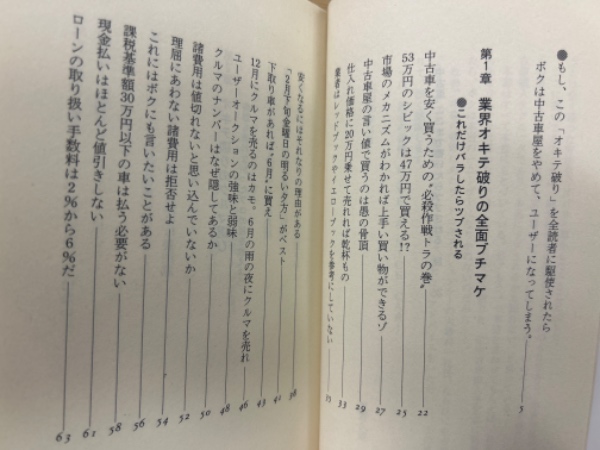 ●もし、この「オキテ破り」を全読者に駆使されたら
ボクは中古車屋をやめて、ユーザーになってしまう。 5
第1章 業界オキテ破りの全面ブチマケ
●これだけバラしたらツブされる
中古車を安く買うための“必殺作戦トラの巻” 22
53万円のシビックは47万円で買える!? 25
市場のメカニズムがわかれば上手い買い物ができるゾ 27
中古車屋の言い値で買うのは愚の骨頂 29
仕入れ価格に20万円乗せて売れれば乾杯もの 33
業者はレッドブックやイエローブックを参考にしていない 35
安くなるにはそれなりの理由がある 38
「2月下旬金曜日の明るい夕方」がベスト 41
下取り車があれば“6月”に買え 43
12月にクルマを売るのはカモ。6月の雨の夜にクルマを売れ 46
ユーザーオークションの強味と弱味 48
クルマのナンバーはなぜ隠してあるか 50
諸費用は値切れないと思い込んでいないか 52
理屈にあわない諸費用は拒否せよ 54
これにはボクにも言いたいことがある 56
課税基準額30万円以下の車は払う必要がない 58
現金払いはほとんど値引きしない 61
ローンの取り扱い手数料は2%から6%だ 63